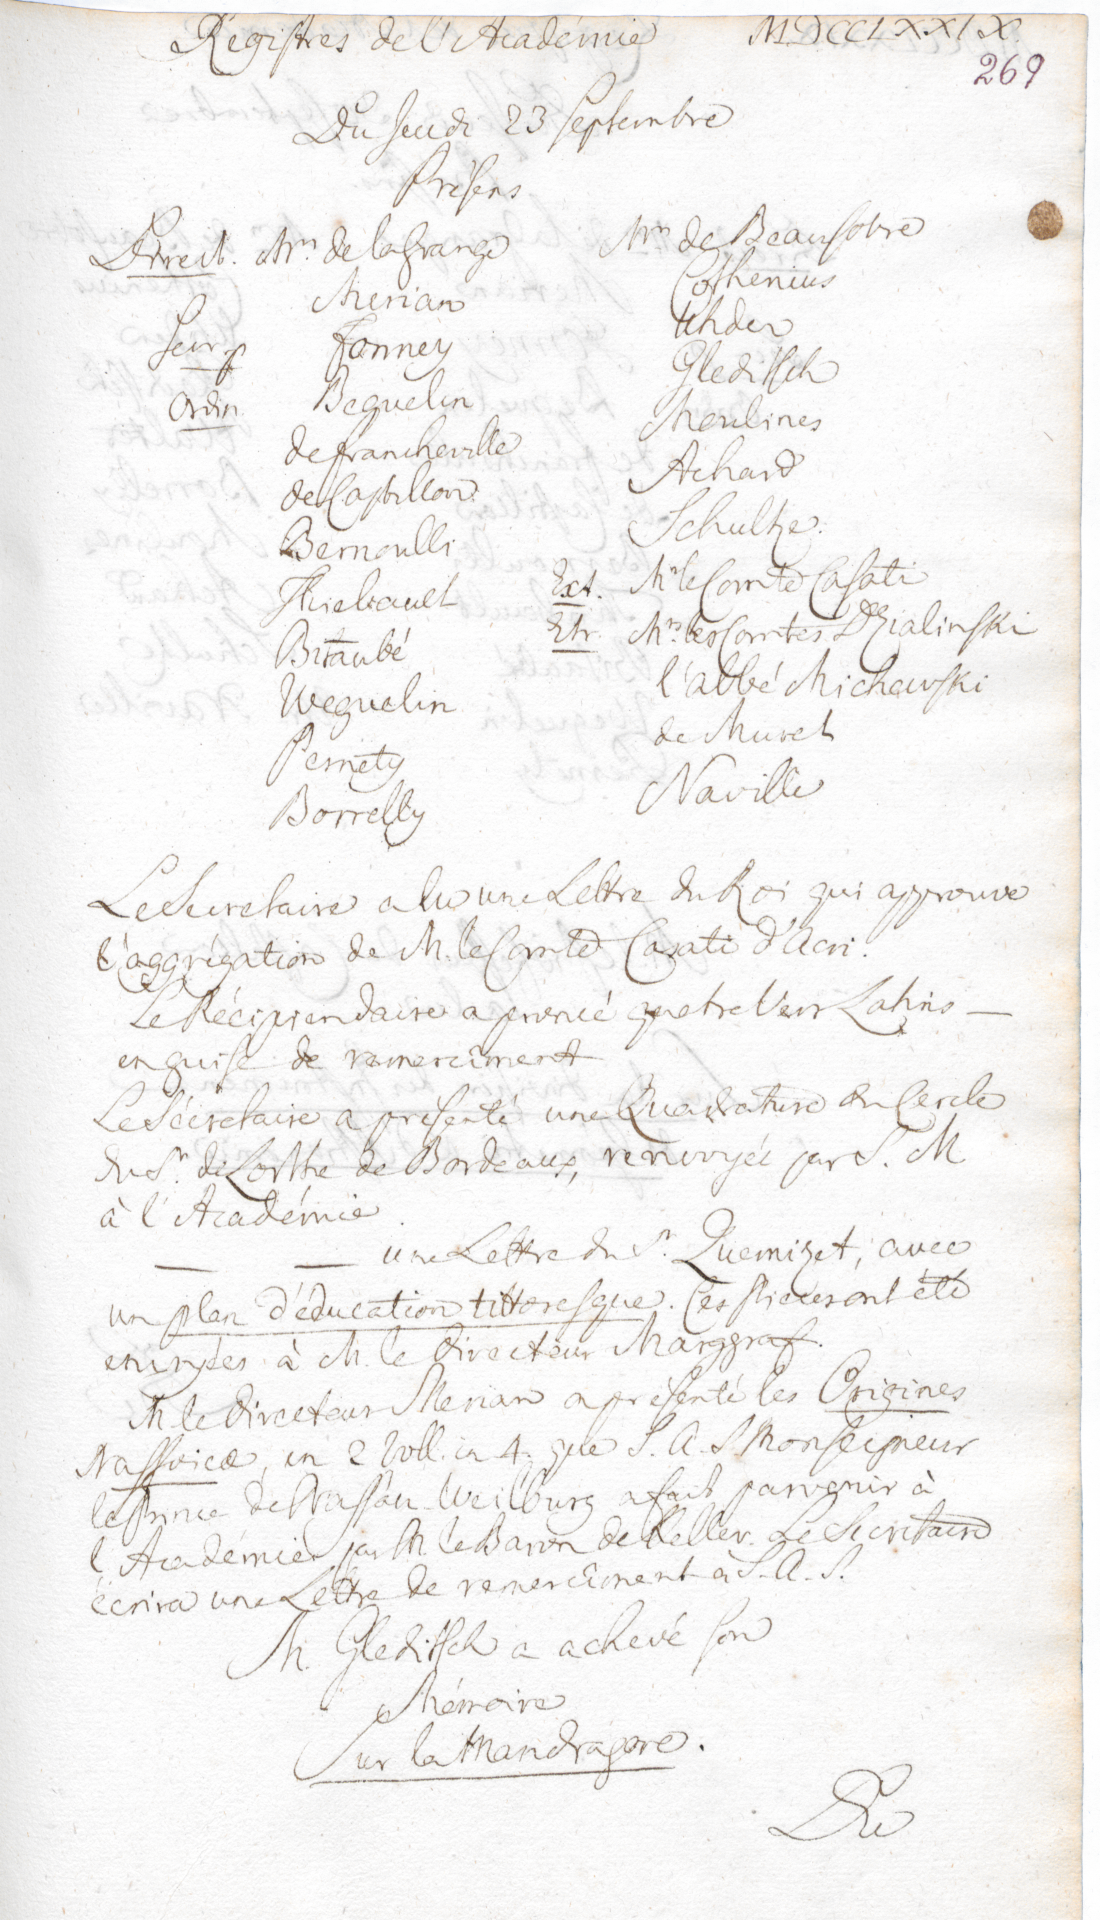 Régistres de l'Académie MDCCLXXIX.
269
Du Jeudi 23 Septembre
Présens
Direct. Mrs. de la Grange
Merian
Secr. p. Formey
Ordin. Beguelin
de Francheville
de Castillon
Bernoulli
Thiebault
Bitaubé
Weguelin
Pernety
Borrelly
Mrs de Beausobre
Cothenius
Uhden
Gleditsch
Moulines
Achard
Schultze.
Ext. Mr le Comte Casati
Etr. Mrs. les Comtes Dzialinski
l'abbé Michewski
de Muret
Naville
Le Secretaire a lu une Lettre du Roi qui approuve
l'aggrégation de M. le Comte Casati d'Acri.
Le Récipiendaire a prononcé quatre Vers Latins —
en guise de remerciment
Le Sécretaire a présenté une Quadrature du Cercle
du Sr. de Lorthe de Bordeaux, renvoyée par S. M
à l'Académie.
— — une Lettre du Sr. Quemizet, avec
un plan d'éducation Ces pieces ont été
envoyées à M. le Directeur Marggraf.
M. le Directeur Merian a présenté les Origines
Nassoicæ, en 2 Voll. in 4. que S. A. S. Monseigneur
le Prince de Nassau-Weilburg a fait parvenir à
l'Académie par M. le Baron de Keller. Le Secretaire
écrira une Lettre de remerciment à S. A. S.
M. Gleditsch a achevé son
Mémoire
Sur la Mandragore.
Du